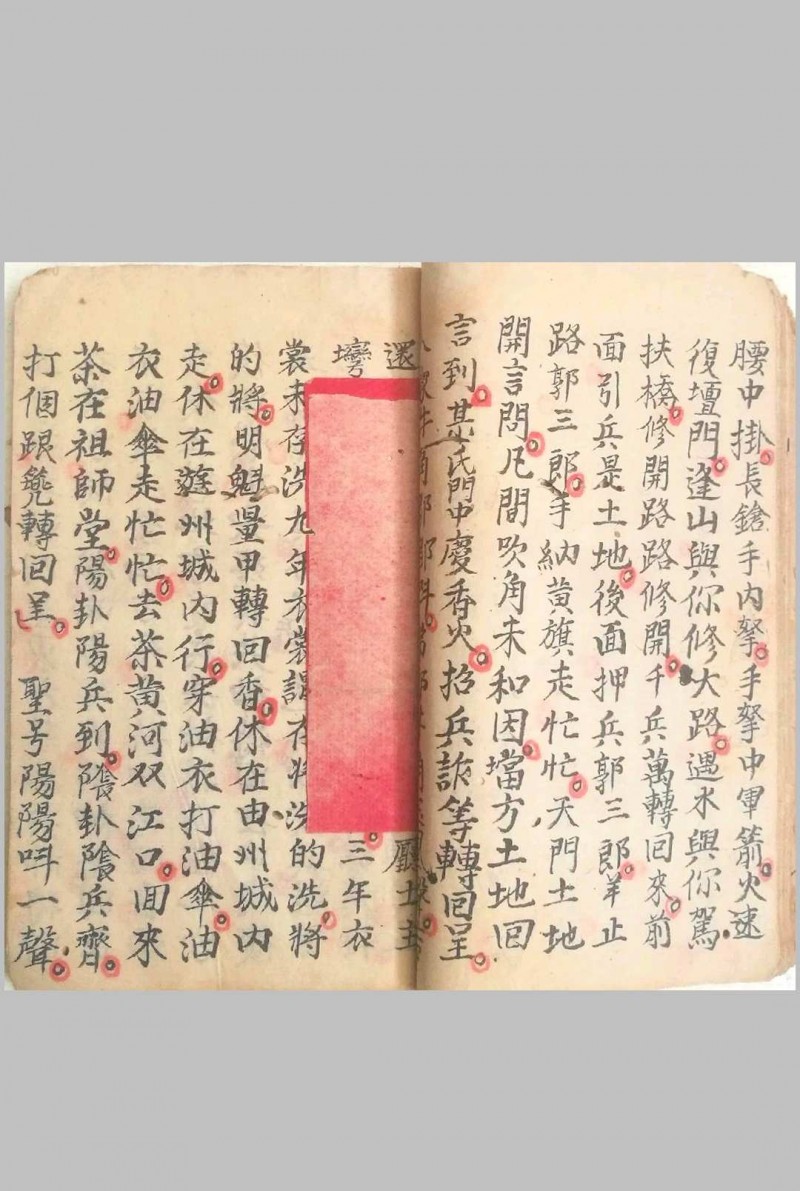 腰中掛長鎗手內拏手拏中軍箭火速
復壇門逢山與你修大路遇水與你駕
扶橋修開路路修開千兵萬轉回來前
面引兵是土地後面押兵郭三郎羊止
路郭三郎手納黃旗走忙忙天門土地
開言問凡間吹角未和因壋方土地回
言到某氏門中慶香火招兵訴等轉回呈
還
三年衣
裳未存洗九年衣裳謂存將洗的洗將
的將明魁量甲轉回香休在由州城內
走休在遊州城內行穿油衣打油傘油
衣油傘走忙忙去茶黃河双江口回來
茶在祖師堂陽卦陽兵到陰卦陰兵齊
打個跟兠轉回呈 聖号陽陽呌一聲